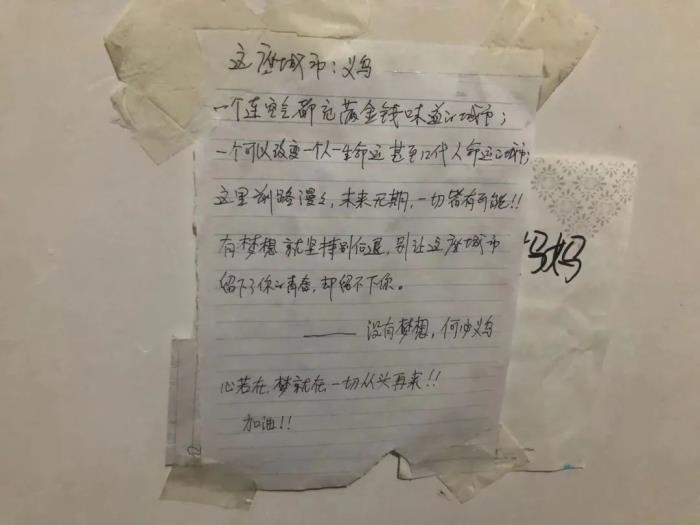 这座城市:义乌
一个连空气都充满金钱味道的城市;
一个可以改变一个人一生命运甚至几代人命运的城市;
这里前路漫々,未来无期,一切皆有可能!!
有梦想就坚持别后退,别让这座城市
留下了你的青春,却留不下你。
—— 没有梦想,何必义乌
心若在,梦就在,一切从头再来!!
加油!!
妈妈